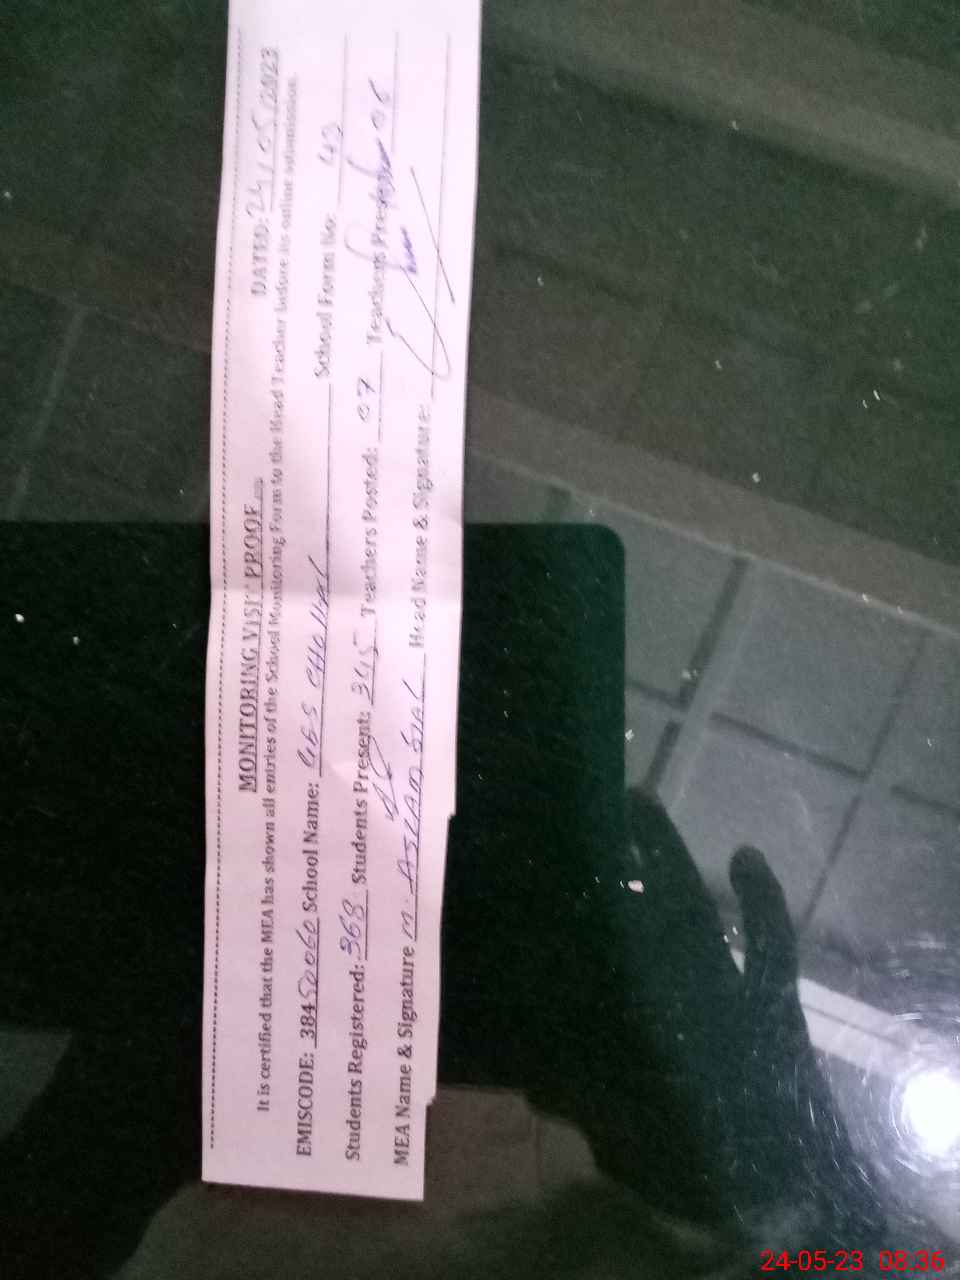 MONITORING VISIT PROOF DATED: 24/05/2023
It is certified that the MEA has shown all entries of the School Monitoring Form to the Head Teacher before its online submission.
EMISCODE: 38450060 School Name: School Form No: 43
Students Registered: 368 Students Present: 345 Teachers Posted: 07 Teachers Present: 06
MEA Name & Signature M. ASLAM Head Name & Signature:
24-05-23 08:36